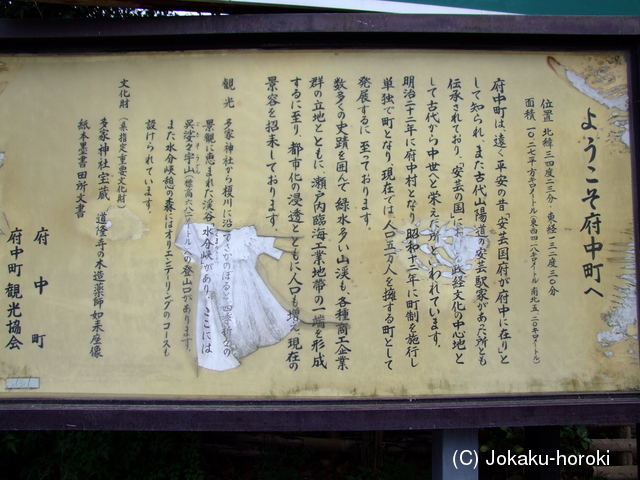 ようこそ府中町へ
位置 北緯 三四度二三分 東経一三二度三〇分
面積 一〇・二六平方キロメートル(東西四・八キロメートル 南北五・二〇キロメートル)
府中町は、遠く平安の昔「安芸国府が府中に在り」と
して知られ、また古代山陽道の安芸駅家があった所とも
伝承されており、「安芸の国に
政経文化の中心地と
して古代から中世へと栄えた所
いわれています。
明治二十二年に府中村となり、昭和十二年に町制を施行し
単独で町となり、現在では人口五万人を擁する町として
発展するに至っております。
数多くの史蹟を囲んで緑水多い山渓も、各種商工企業
群の立地とともに、瀬戸内臨海工業地帯の一端を形成
するに至り、都市化の浸透とともに人口も増え、現在の
景容を招来しております。
観光 多家神社から榎川に沿ってさかのぼると、四季折々の
景観に恵まれた渓谷「水分峡」があり、ここには
呉娑々宇山(標高六八二メートル)への登山口があります。
また水分峡憩の森にはオリエンテーリングのコースも
設けられています。
文化財 (県指定重要文化財)
多家神社宝蔵 道隆寺の木造薬師如来座像
紙本墨書田所文書
府中町
府中町観光協会
(C) Jokaku-horoki